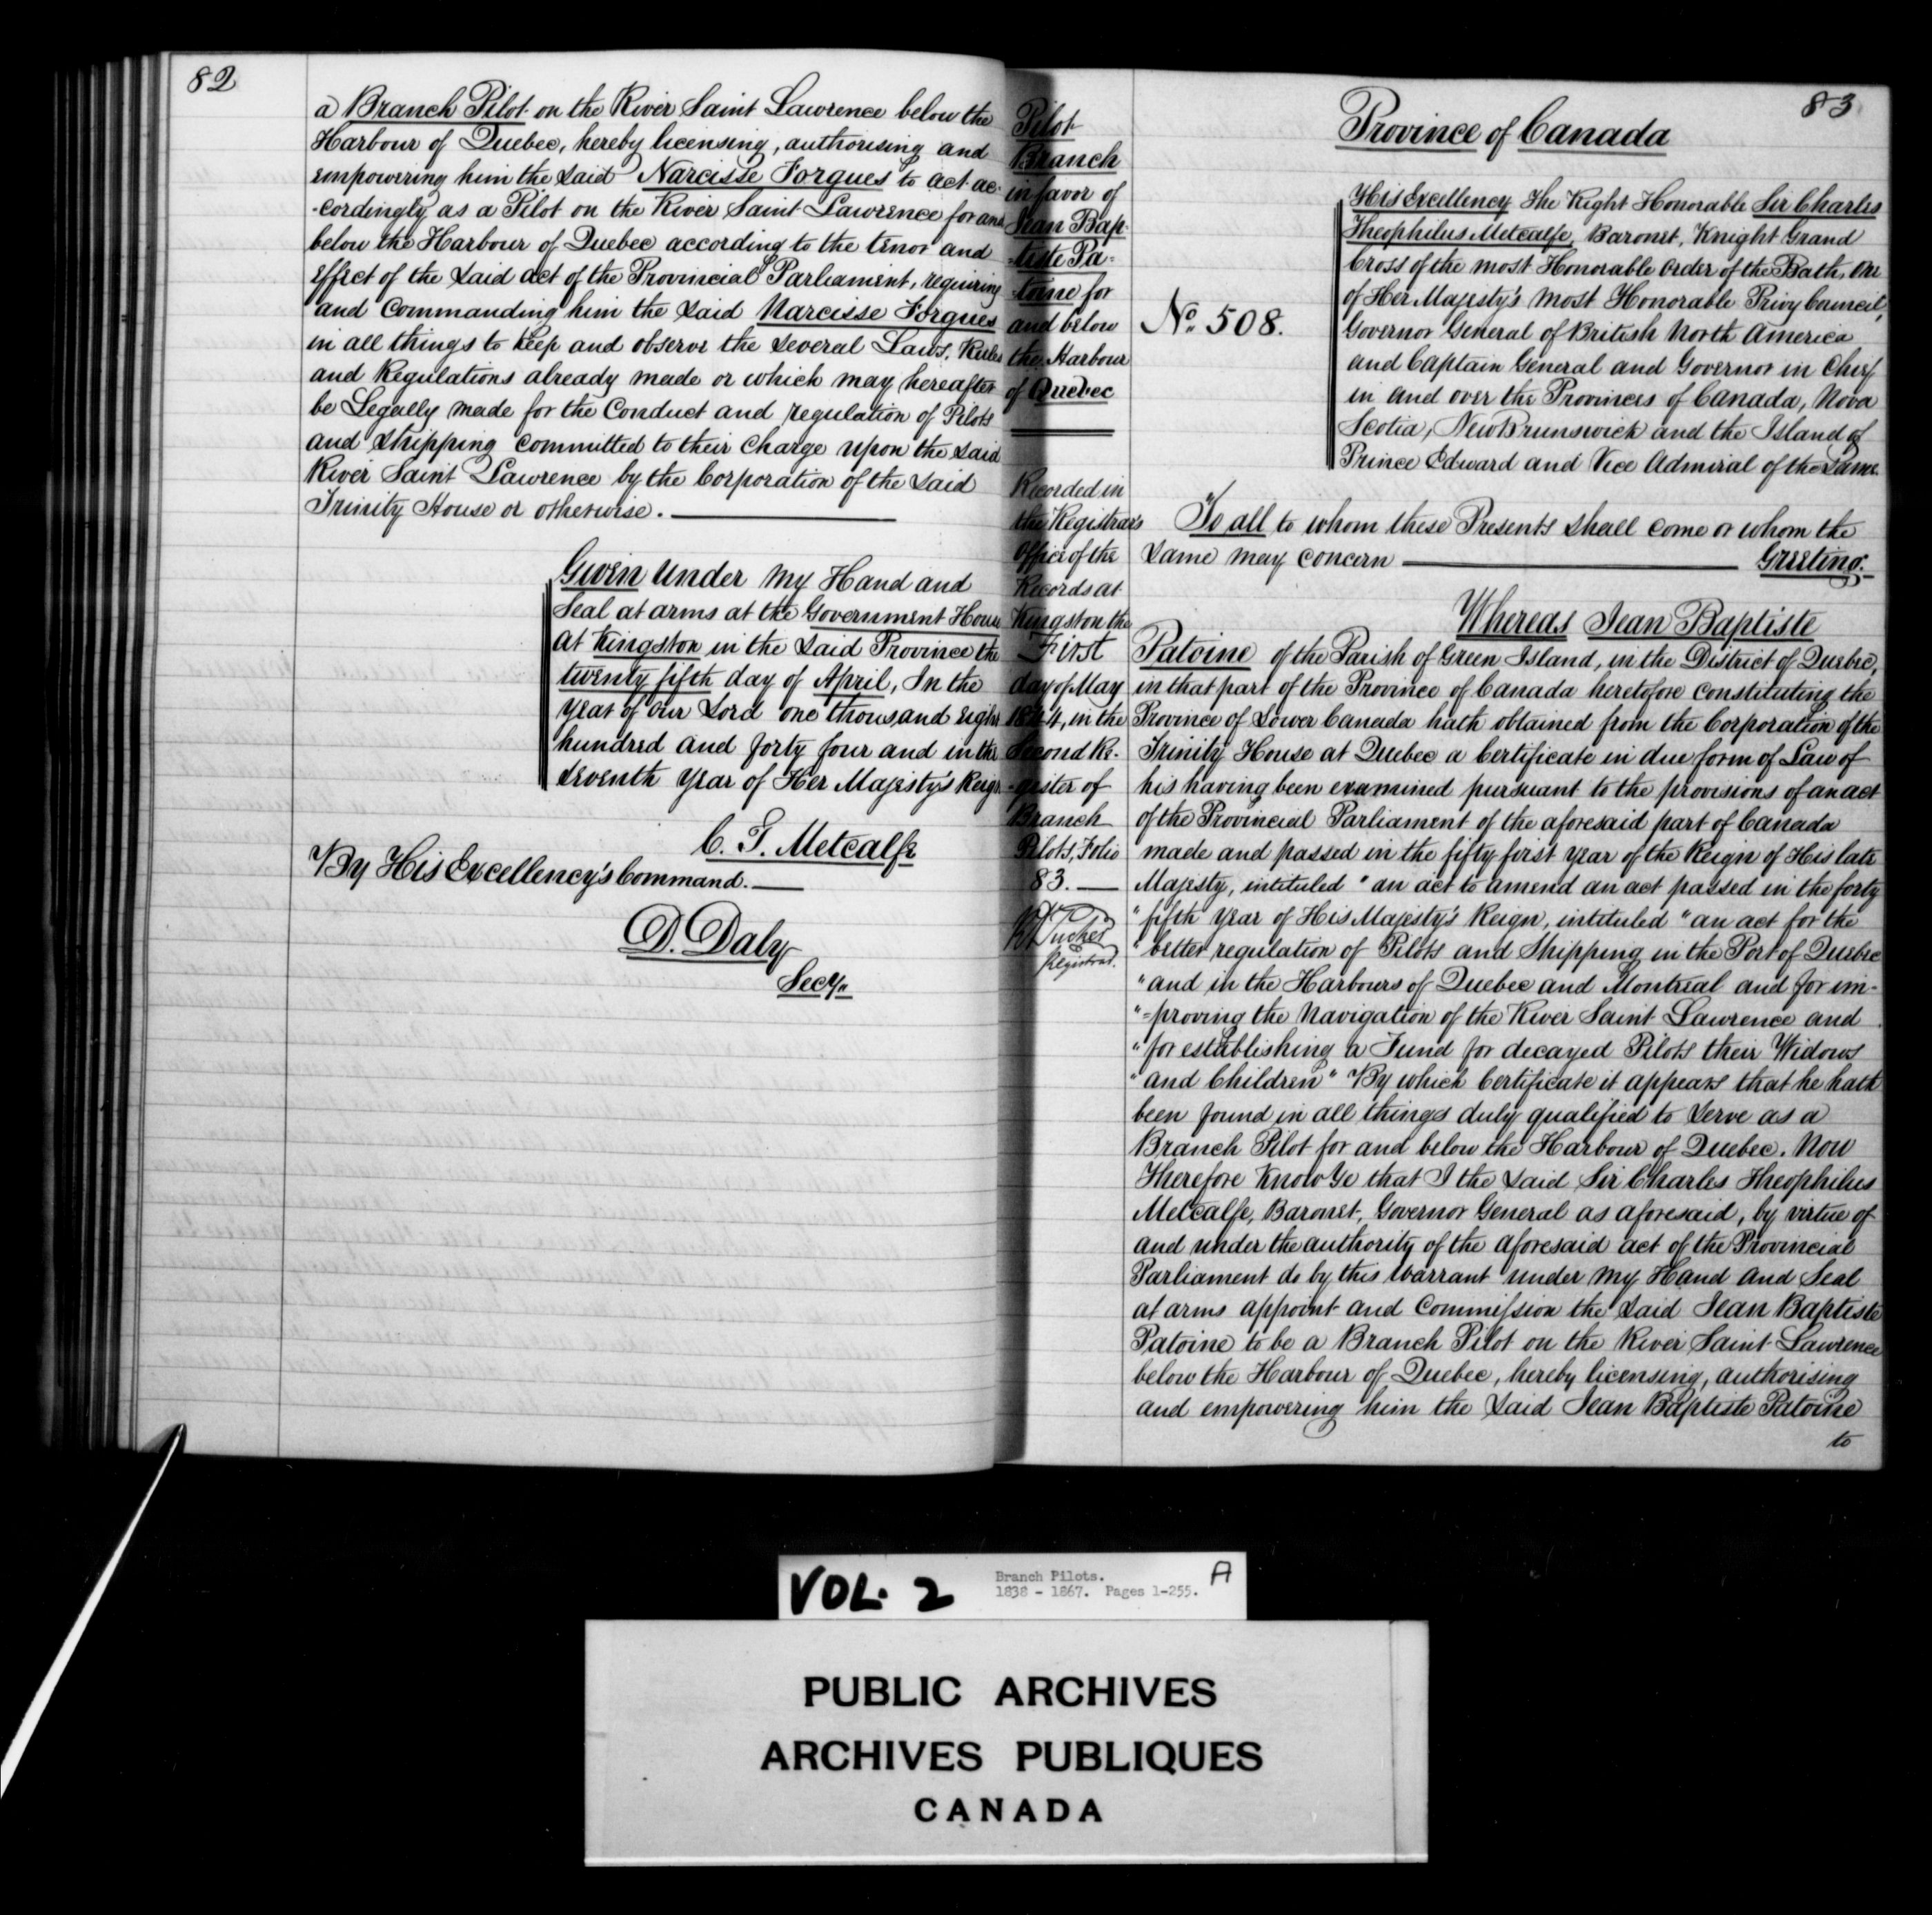 82
a Branch Pilot on the River Saint Lawrence below the
Harbour of Quebec, hereby licensing, authorising and
empowering him the said Narcisse Forgues to act ac-
-cordingly as a Pilot on the River Saint Lawrence for and
below the Harbour of Quebec according to the tenor and
effect of the said act of the Provincial Parliament, requiring
and Commanding him the said Narcisse Forgues
in all things to keep and observe the several Laws, Rules
and Regulations already made or which may hereafter
be Legally made for the Conduct and regulation of Pilots
and Shipping committed to their Charge upon the said
River Saint Lawrence by the Corporation of the said
Trinity House or otherwise.
Given under my Hand and
Seal at arms at the Government House
at Kingston in the said Province the
twenty fifth day of April, In the
year of our Lord one thousand eight
hundred and forty four and in the
seventh year of Her Majesty's Reign
C. T. Metcalfe
By His Excellency's Command.
D. Daly
Secy.
83
Pilot
Branch
in favor of
Jean Bap-
-tiste Pa-
-toine for
and below
the Harbour
of Quebec
Recorded in
the Registrar's
Office of the
Records at
Kingston the
First
day of May
1844, in the
Second Re-
-gister of
Branch
Pilots, Folio
83.
R Tucker
Registrar.
Province of Canada
No. 508.
His Excellency The Right Honorable Sir Charles
Theophilus Metcalfe, Baronet, Knight Grand
Cross of the most Honorable Order of the Bath, One
of Her Majesty's most Honorable Privy Council,
Governor General of British North America
and Captain General and Governor in Chief
in and over the Provinces of Canada, Nova
Scotia, New Brunswick and the Island of
Prince Edward and Vice Admiral of the same.
To all to whom these Presents shall come or whom the
same may concern Greeting.
Whereas Jean Baptiste
Patoine of the Parish of Green Island, in the District of Quebec,
in that part of the Province of Canada heretofore constituting the
Province of Lower Canada hath obtained from the Corporation of the
Trinity House at Quebec a Certificate in due form of Law of
his having been examined pursuant to the provisions of an act
of the Provincial Parliament of the aforesaid part of Canada
made and passed in the fifty first year of the Reign of His late
Majesty, intituled "an act to amend an act passed in the forty
"fifth year of His Majesty's Reign, intituled "an act for the
"better regulation of Pilots and Shipping in the Port of Quebec
"and in the Harbours of Quebec and Montreal and for im-
"-proving the Navigation of the River Saint Lawrence and
"for establishing a Fund for decayed Pilots their Widows
"and Children" By which Certificate it appears that he hath
been found in all things duly qualified to serve as a
Branch Pilot for and below the Harbour of Quebec. Now
Therefore Know Ye that I the said Sir Charles Theophilus
Metcalfe, Baronet, Governor General as aforesaid, by virtue of
and under the authority of the aforesaid act of the Provincial
Parliament do by this Warrant under my Hand and Seal
at arms appoint and Commission the said Jean Baptiste
Patoine to be a Branch Pilot on the River Saint Lawrence
below the Harbour of Quebec, hereby licensing, authorising
and empowering him the said Jean Baptiste Patoine
to
VOL. 2
Branch Pilots.
1838 - 1867. Pages 1-255.
A
PUBLIC ARCHIVES
ARCHIVES PUBLIQUES
CANADA